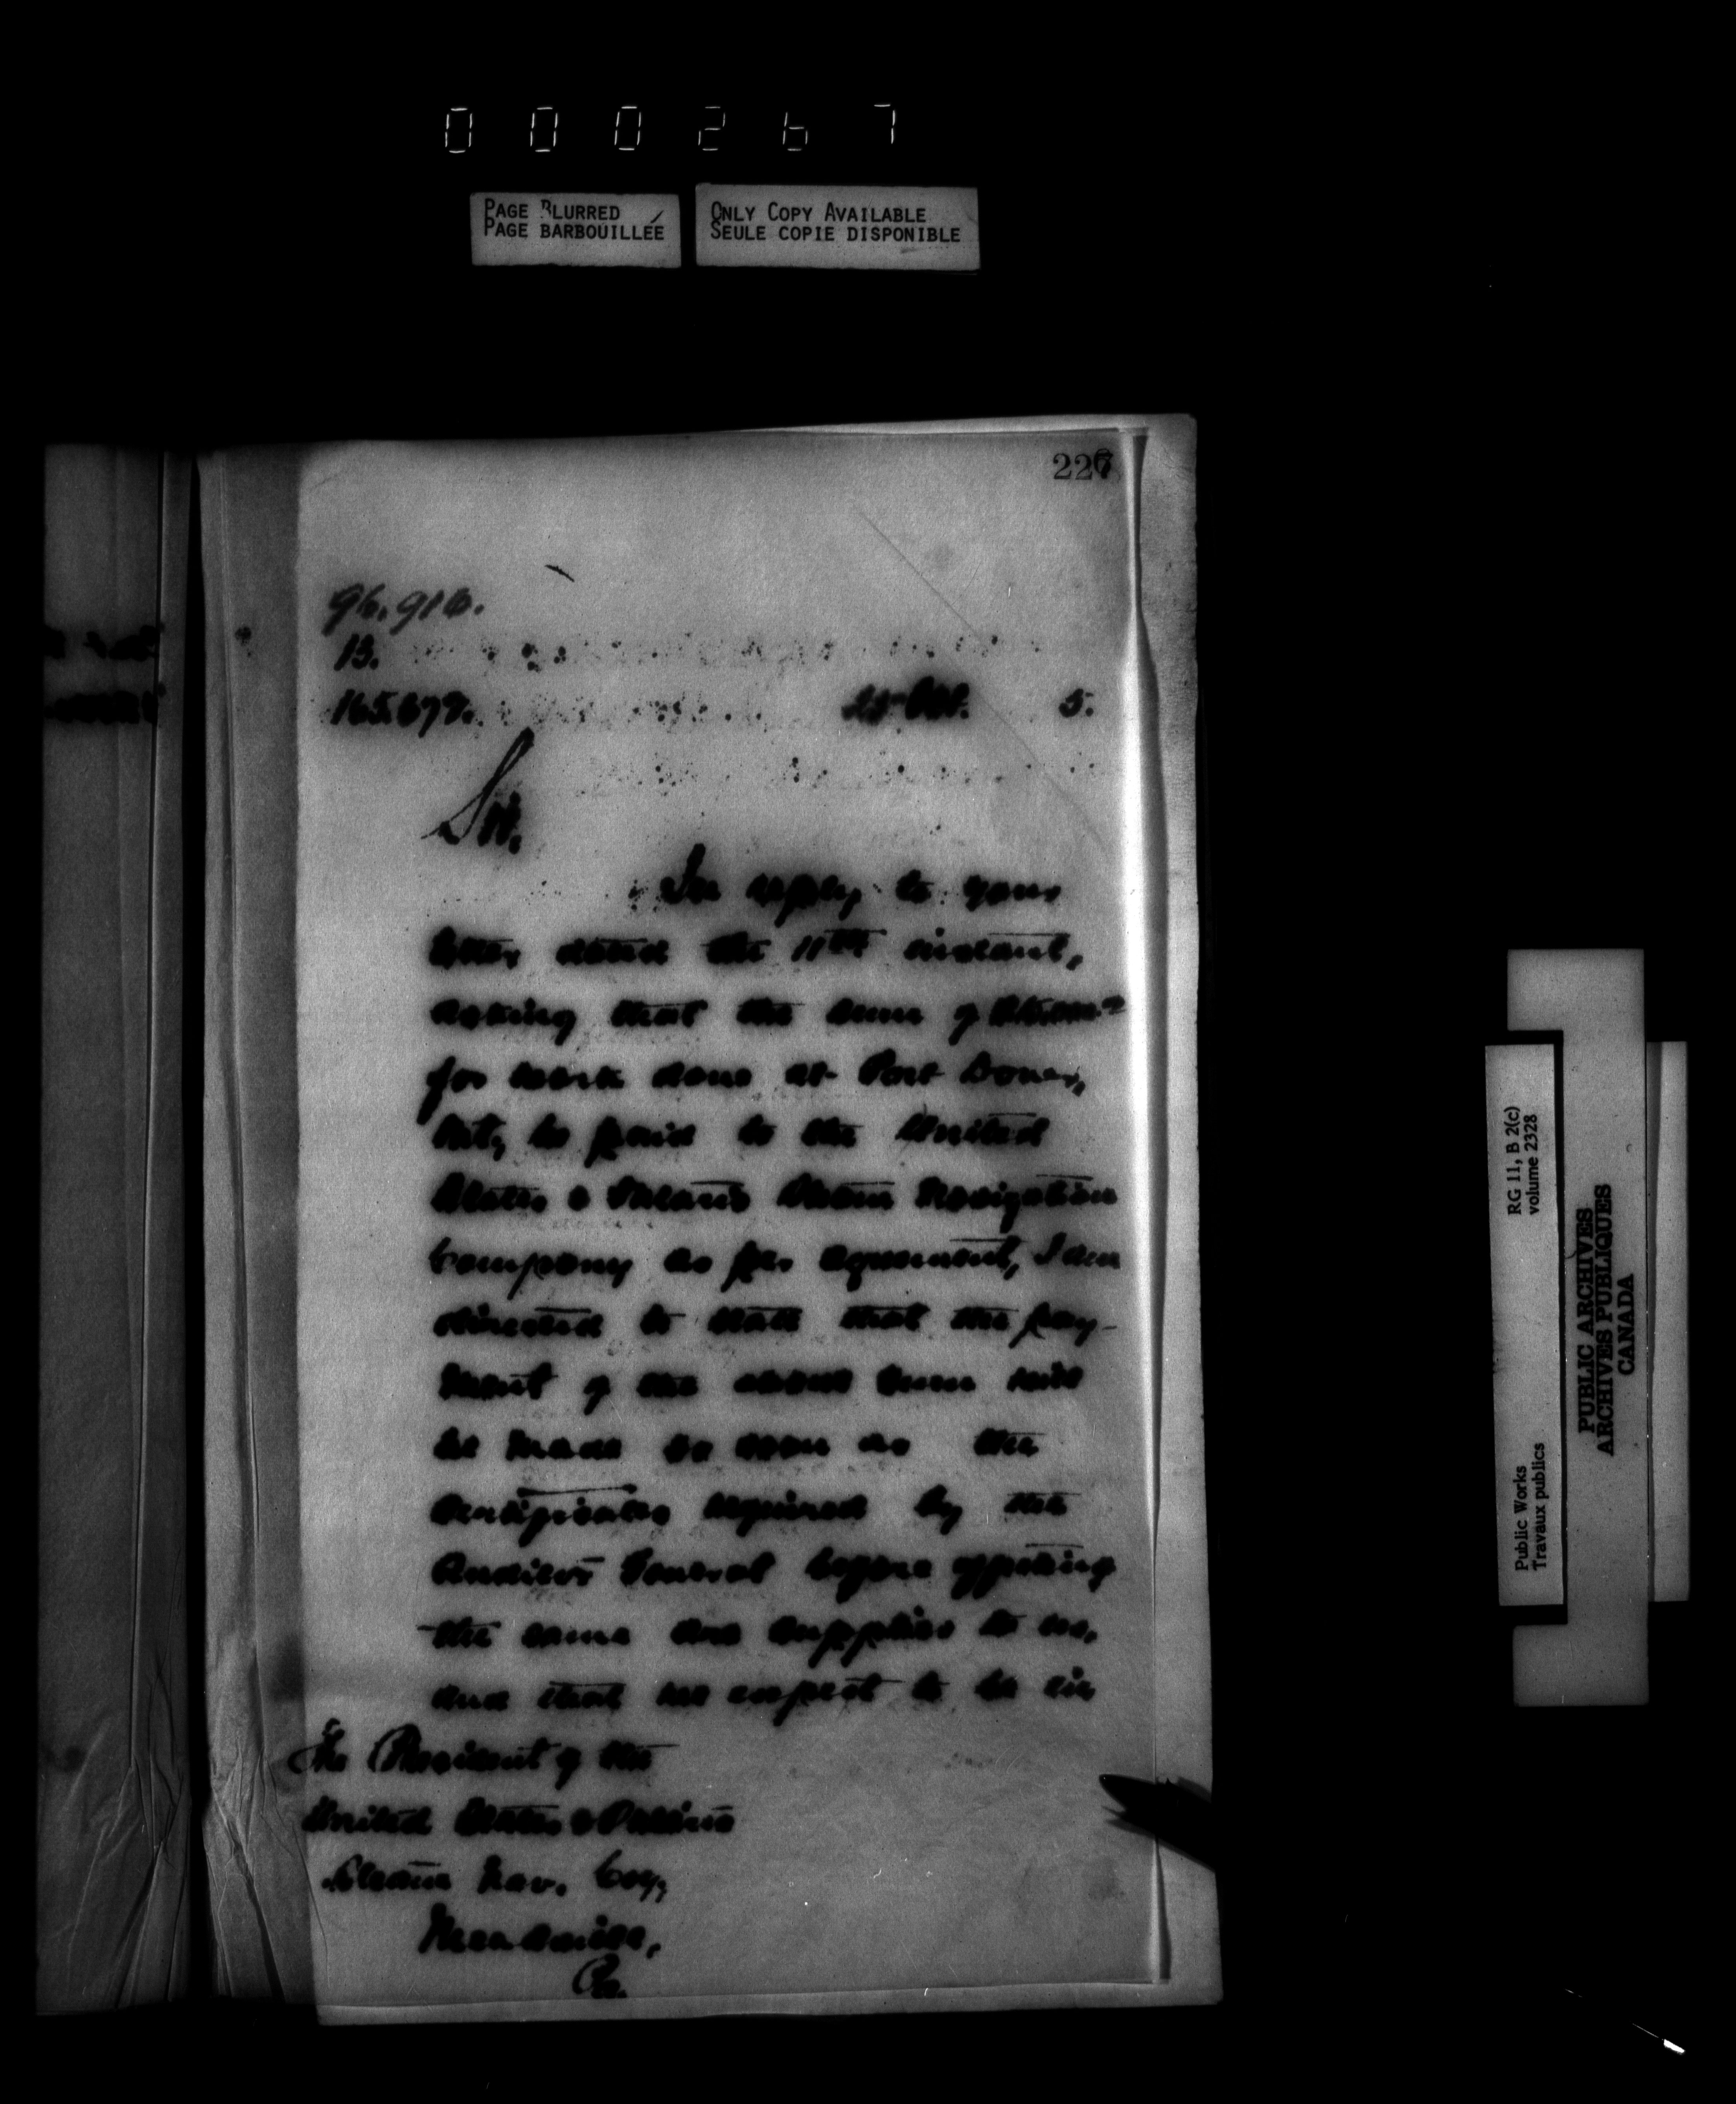 000267
PAGE BLURRED
PAGE BARBOUILLÉE
ONLY COPY AVAILABLE
SEULE COPIE DISPONIBLE
226
96.916.
13.
165.679.
25 Oct. 5.
Sir,
In reply to your
letter dated the 11th instant,
asking that the sum of
for work done at Port Dover,
Ont, be paid to the United
States & Ontario Steam Navigation
Company as per agreement, I am
directed to state that the pay-
ment of the above sum will
be made so soon as the
certificates required by the
Auditor General before
the same are supplied to us,
and that we expect to be in
The President of the
United States & Ontario
Steam Nav. Coy,
Meadville,
Pa.
RG 11, B 2(c)
volume 2328
Public Works
Travaux publics
PUBLIC ARCHIVES
ARCHIVES PUBLIQUES
CANADA